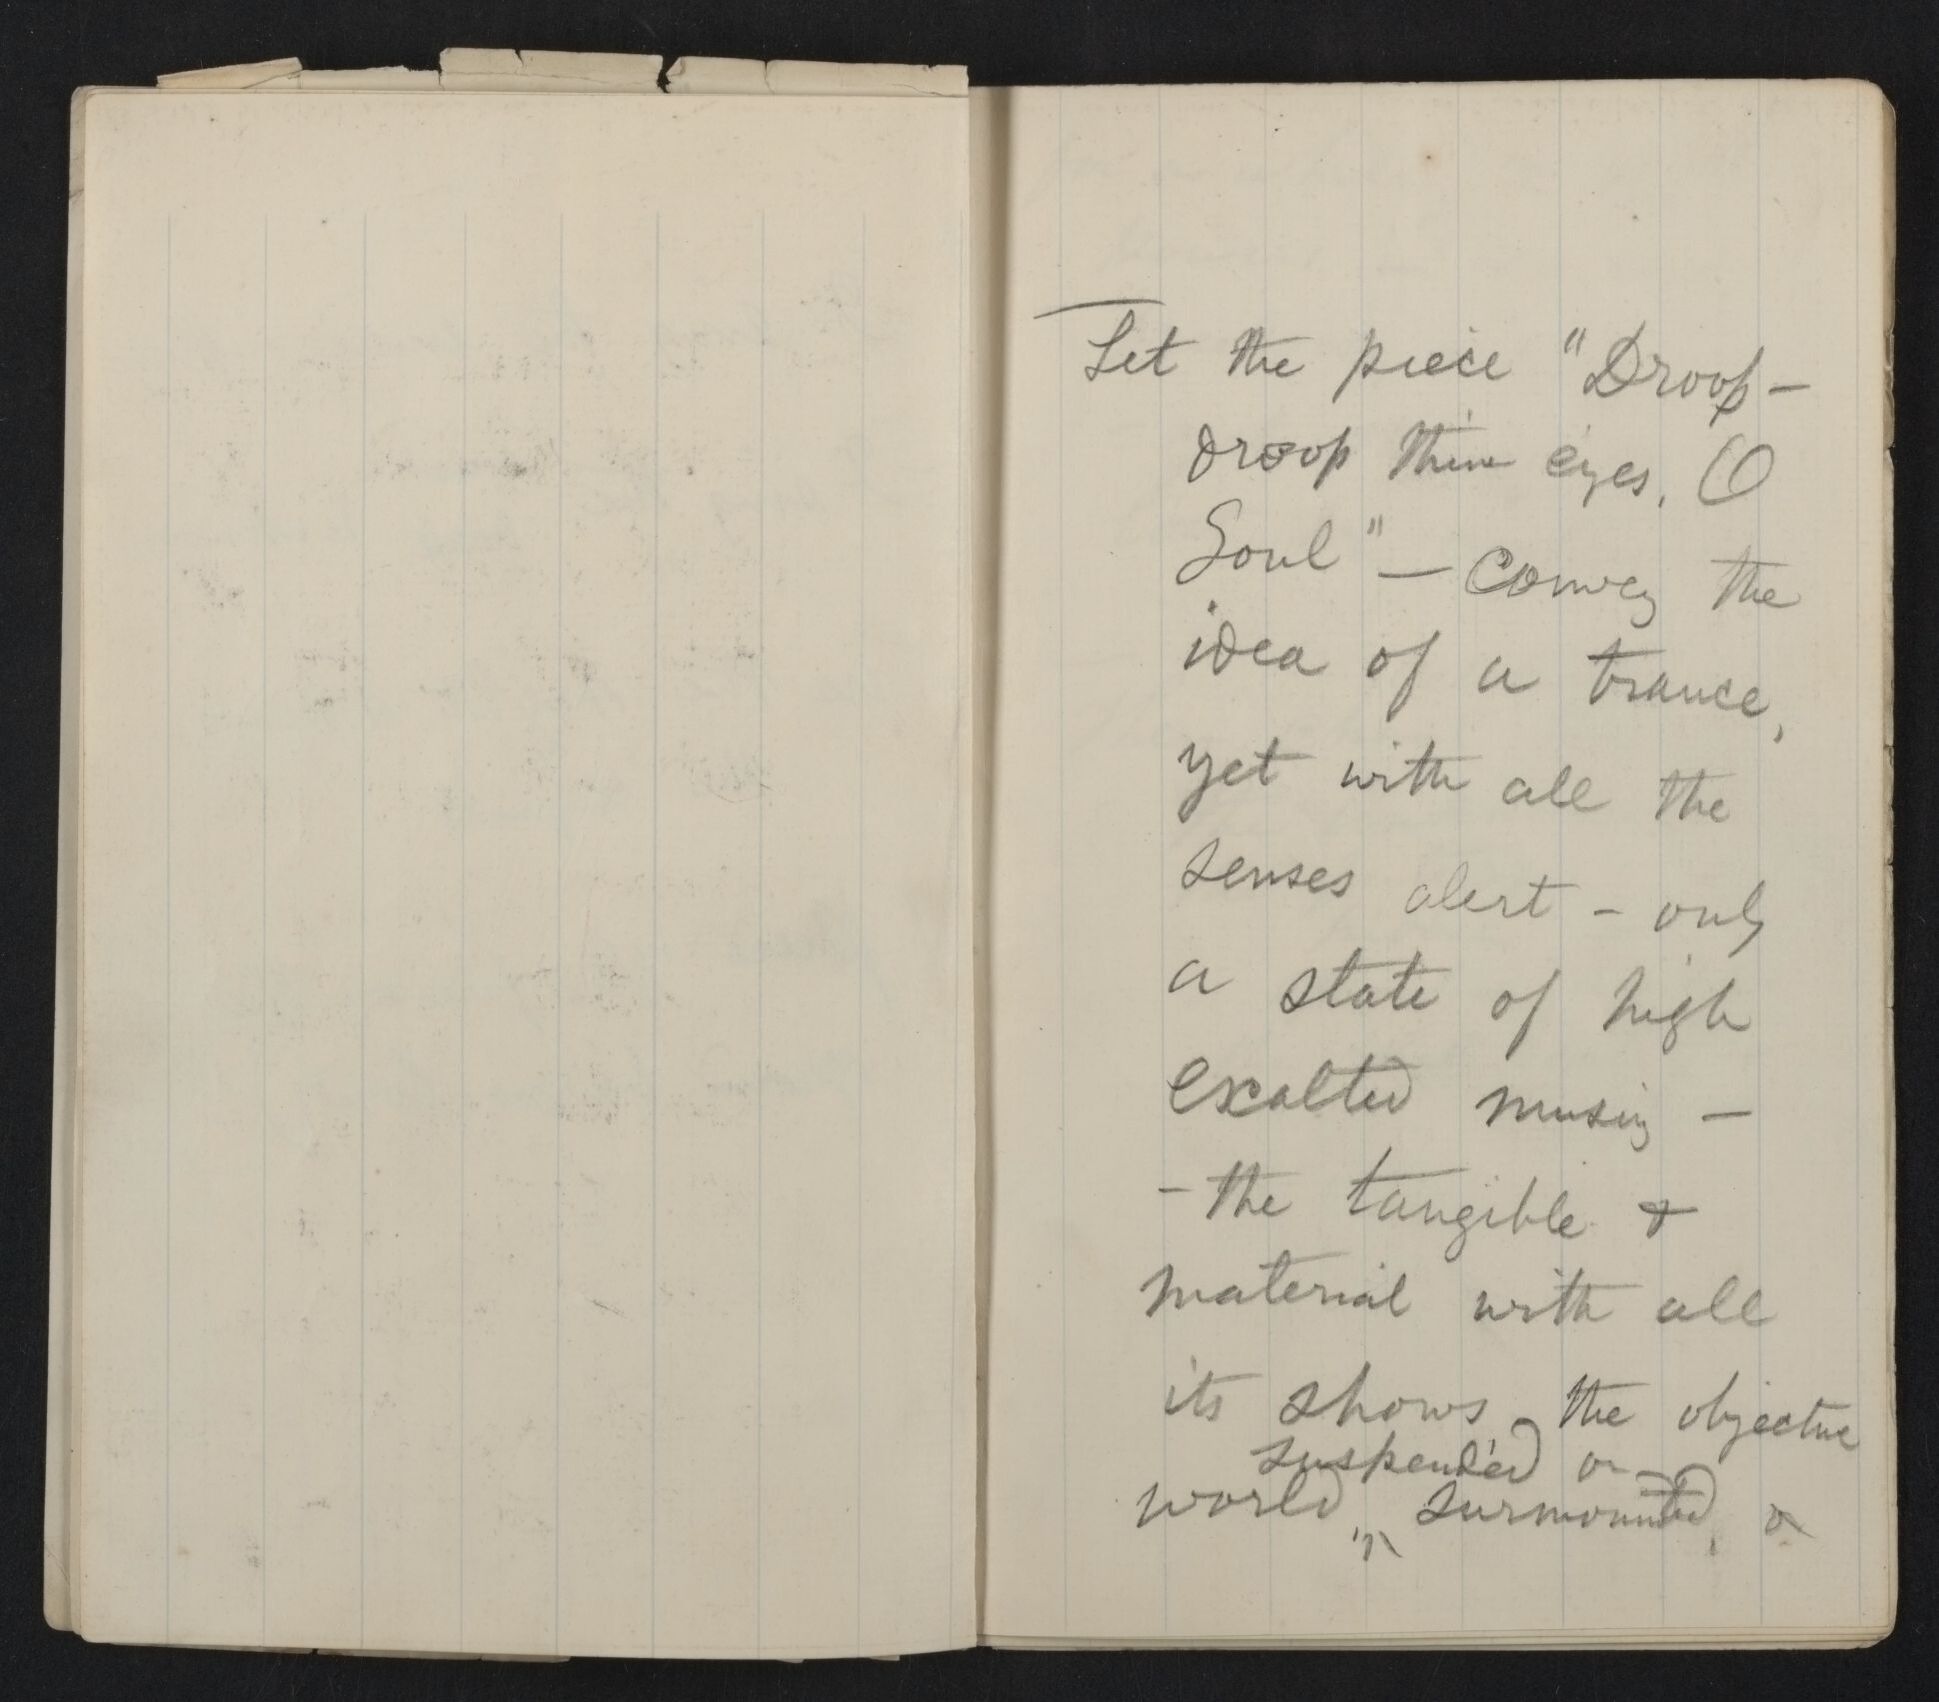 Let the piece "Droop –
droop thine eyes, O
Soul" – convey the
idea of a trance,
yet with all the
senses alert – only
a state of high
exalted musing –
– the tangible &
material with all
its shows, the objective
suspended or
world, surmounted, &